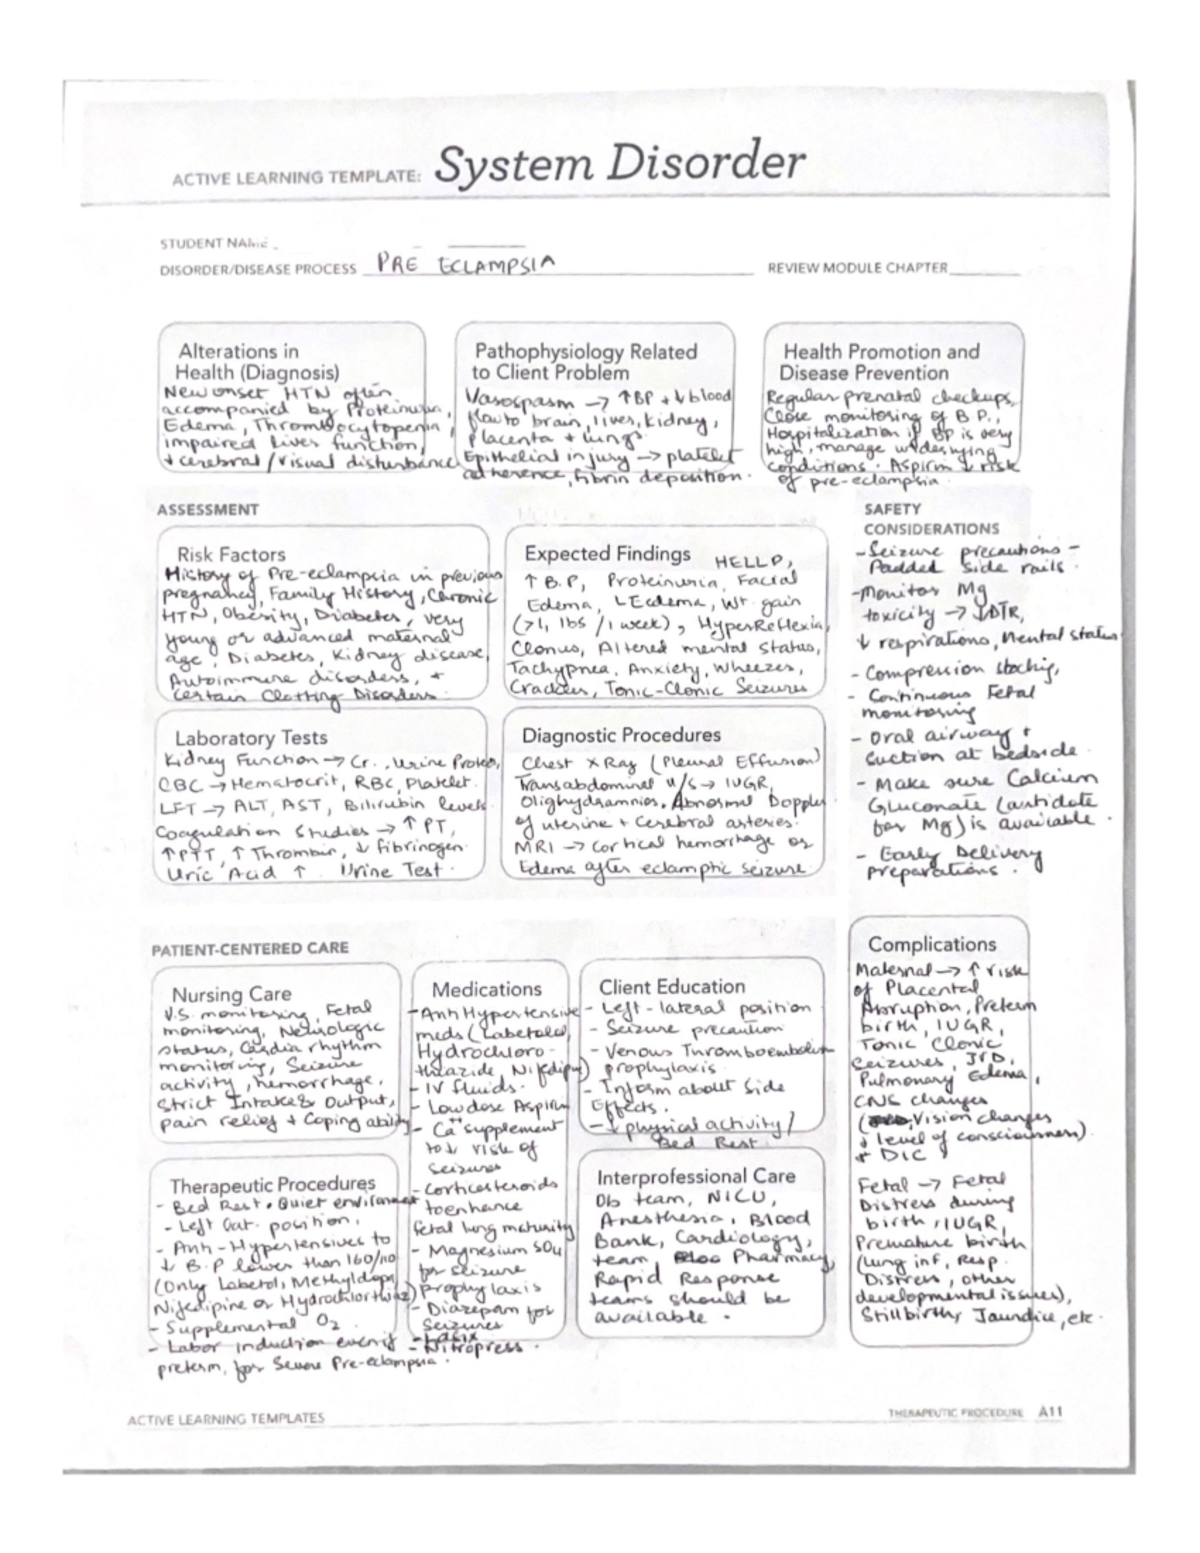 ACTIVE LEARNING TEMPLATE: System Disorder
STUDENT NAME
DISORDER/DISEASE PROCESS PRE ECLAMPSIA
REVIEW MODULE CHAPTER
Alterations in
Health (Diagnosis)
New onset HTN often
accompanied by Proteinuria,
Edema, Thrombocytopenia,
impaired liver function,
+ cerebral/visual disturbance
Pathophysiology Related
to Client Problem
Vasospasm → ↑BP + ↓ blood
flow to brain, liver, kidney,
placenta + lungs.
Epithelial injury → platelet
adherence, fibrin deposition.
Health Promotion and
Disease Prevention
Regular prenatal checkups,
Close monitoring of B.P.,
Hospitalization if BP is very
high, manage underlying
conditions. Aspirin ↓ risk
of pre-eclampsia.
ASSESSMENT
Risk Factors
History of Pre-eclampsia in previous
pregnancy, Family History, Chronic
HTN, Obesity, Diabetes, very
young or advanced maternal
age, Diabetes, Kidney disease,
Autoimmune disorders, +
Certain Clotting Disorders.
Expected Findings HELLP,
↑ B.P, Proteinuria, Facial
Edema, LEdema, Wt. gain
(>1, lbs /1 week), HyperReflexia,
Clonus, Altered mental status,
Tachypnea, Anxiety, Wheezes,
Crackles, Tonic-Clonic Seizures
Laboratory Tests
Kidney Function → Cr., Urine Protein,
CBC → Hematocrit, RBC, Platelet.
LFT → ALT, AST, Bilirubin levels
Coagulation Studies → ↑ PT,
↑PTT, ↑ Thrombin, ↓ fibrinogen.
Uric Acid ↑. Urine Test.
Diagnostic Procedures
Chest X Ray (Pleural Effusion)
Transabdominal u/s → IUGR,
Olighydramnios. Abnormal Doppler
of uterine + cerebral arteries.
MRI → cortical hemorrhage or
Edema after eclamptic seizure
SAFETY
CONSIDERATIONS
- Seizure precautions -
Padded side rails.
- Monitor Mg
toxicity → ↓DTR,
↓ respirations, Mental status
- Compression stocking,
- Continuous Fetal
monitoring
- Oral airway +
Suction at bedside.
- Make sure Calcium
Gluconate (antidote
for Mg) is available.
- Early Delivery
preparations.
PATIENT-CENTERED CARE
Nursing Care
V.S. monitoring, Fetal
monitoring, Neurologic
status, Cardia rhythm
monitoring, Seizure
activity, hemorrhage,
Strict Intake & Output,
pain relief + Coping ability
Medications
- AntiHypertensive
meds (Labetalol,
Hydrochloro-
thiazide, Nifedipine)
- IV fluids.
- Low dose Aspirin
- Ca++ supplement
to ↓ risk of
seizures
- Corticosteroids
to enhance
fetal lung maturity
- Magnesium SO4
for seizure
prophylaxis
- Diazepam for
Seizures
- Lasix
- Nitropress.
Client Education
- Left-lateral position
- Seizure precaution
- Venous Thromboembolism
prophylaxis
- Inform about side
Effects.
- ↓ physical activity/
Bed Rest
Therapeutic Procedures
- Bed Rest. Quiet environment
- Left Lat. position,
- Anti-Hypertensives to
↓ B.P lower than 160/110
(Only Labetol, Methyldopa,
Nifedipine or Hydrochlorthiaz)
- Supplemental O2
- Labor induction even if
preterm, for Severe Pre-eclampsia.
Interprofessional Care
Ob team, NICU,
Anesthesia, Blood
Bank, Cardiology,
team, Pharmacy,
Rapid Response
teams should be
available.
Complications
Maternal → ↑ risk
of Placental
Abruption, Preterm
birth, IUGR,
Tonic Clonic
Seizures,
Pulmonary Edema,
CNS changes
(Vision changes
↓ level of consciousness)
+ DIC
Fetal → Fetal
Distress during
birth, IUGR,
Premature birth
(lung inf, Resp.
Distress, other
developmental issues),
Stillbirth, Jaundice, etc.
ACTIVE LEARNING TEMPLATES
THERAPEUTIC PROCEDURE A11